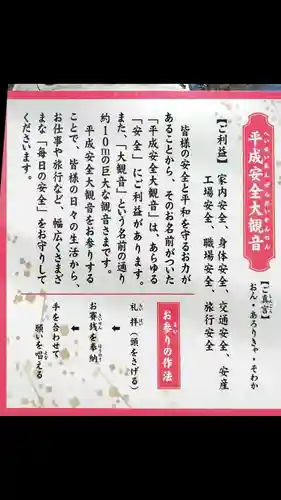 へいせいあんぜんだいかんのん
平成安全大観音
【ご真言】
しんごん
おん・あろりきゃ・そわか
【ご利益】
家内安全、身体安全、交通安全、安産
工場安全、職場安全、旅行安全
皆様の安全と平和を守るお力が
あることから、そのお名前がついた
「平成安全大観音」は、あらゆる
「安全」にご利益があります。
また、「大観音」という名前の通り
約10mの巨大な観音さまです。
平成安全大観音をお参りする
ことで、皆様の日々の生活から、
お仕事や旅行など、幅広くさまざ
まな「毎日の安全」をお守りして
くださいます。
お参りの作法
まい
礼拝（頭をさげる）
←
お賽銭を奉納
さいせん
ほうのう
←
手を合わせて
願いを唱える